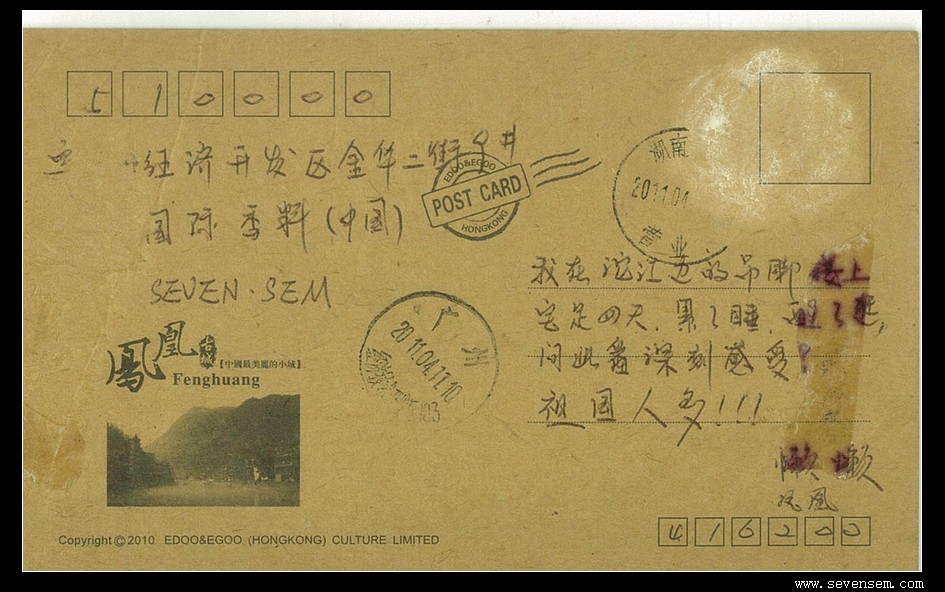 510000
经济开发区金华二街9#
国际香料(中国)
SEVEN·SEM
EDOO&EGOO
POST CARD
HONGKONG
湖南
2011.04
营业
广州
2011.04.11.10
我在沱江边的吊脚楼上
宅足四天,累了睡,醒了逛,
问此番深刻感受?
祖国人多!!!
懒懒
凤凰
416200
鳳凰古城【中國最美麗的小城】
Fenghuang
Copyright©2010 EDOO&EGOO (HONGKONG) CULTURE LIMITED
www.sevensem.com